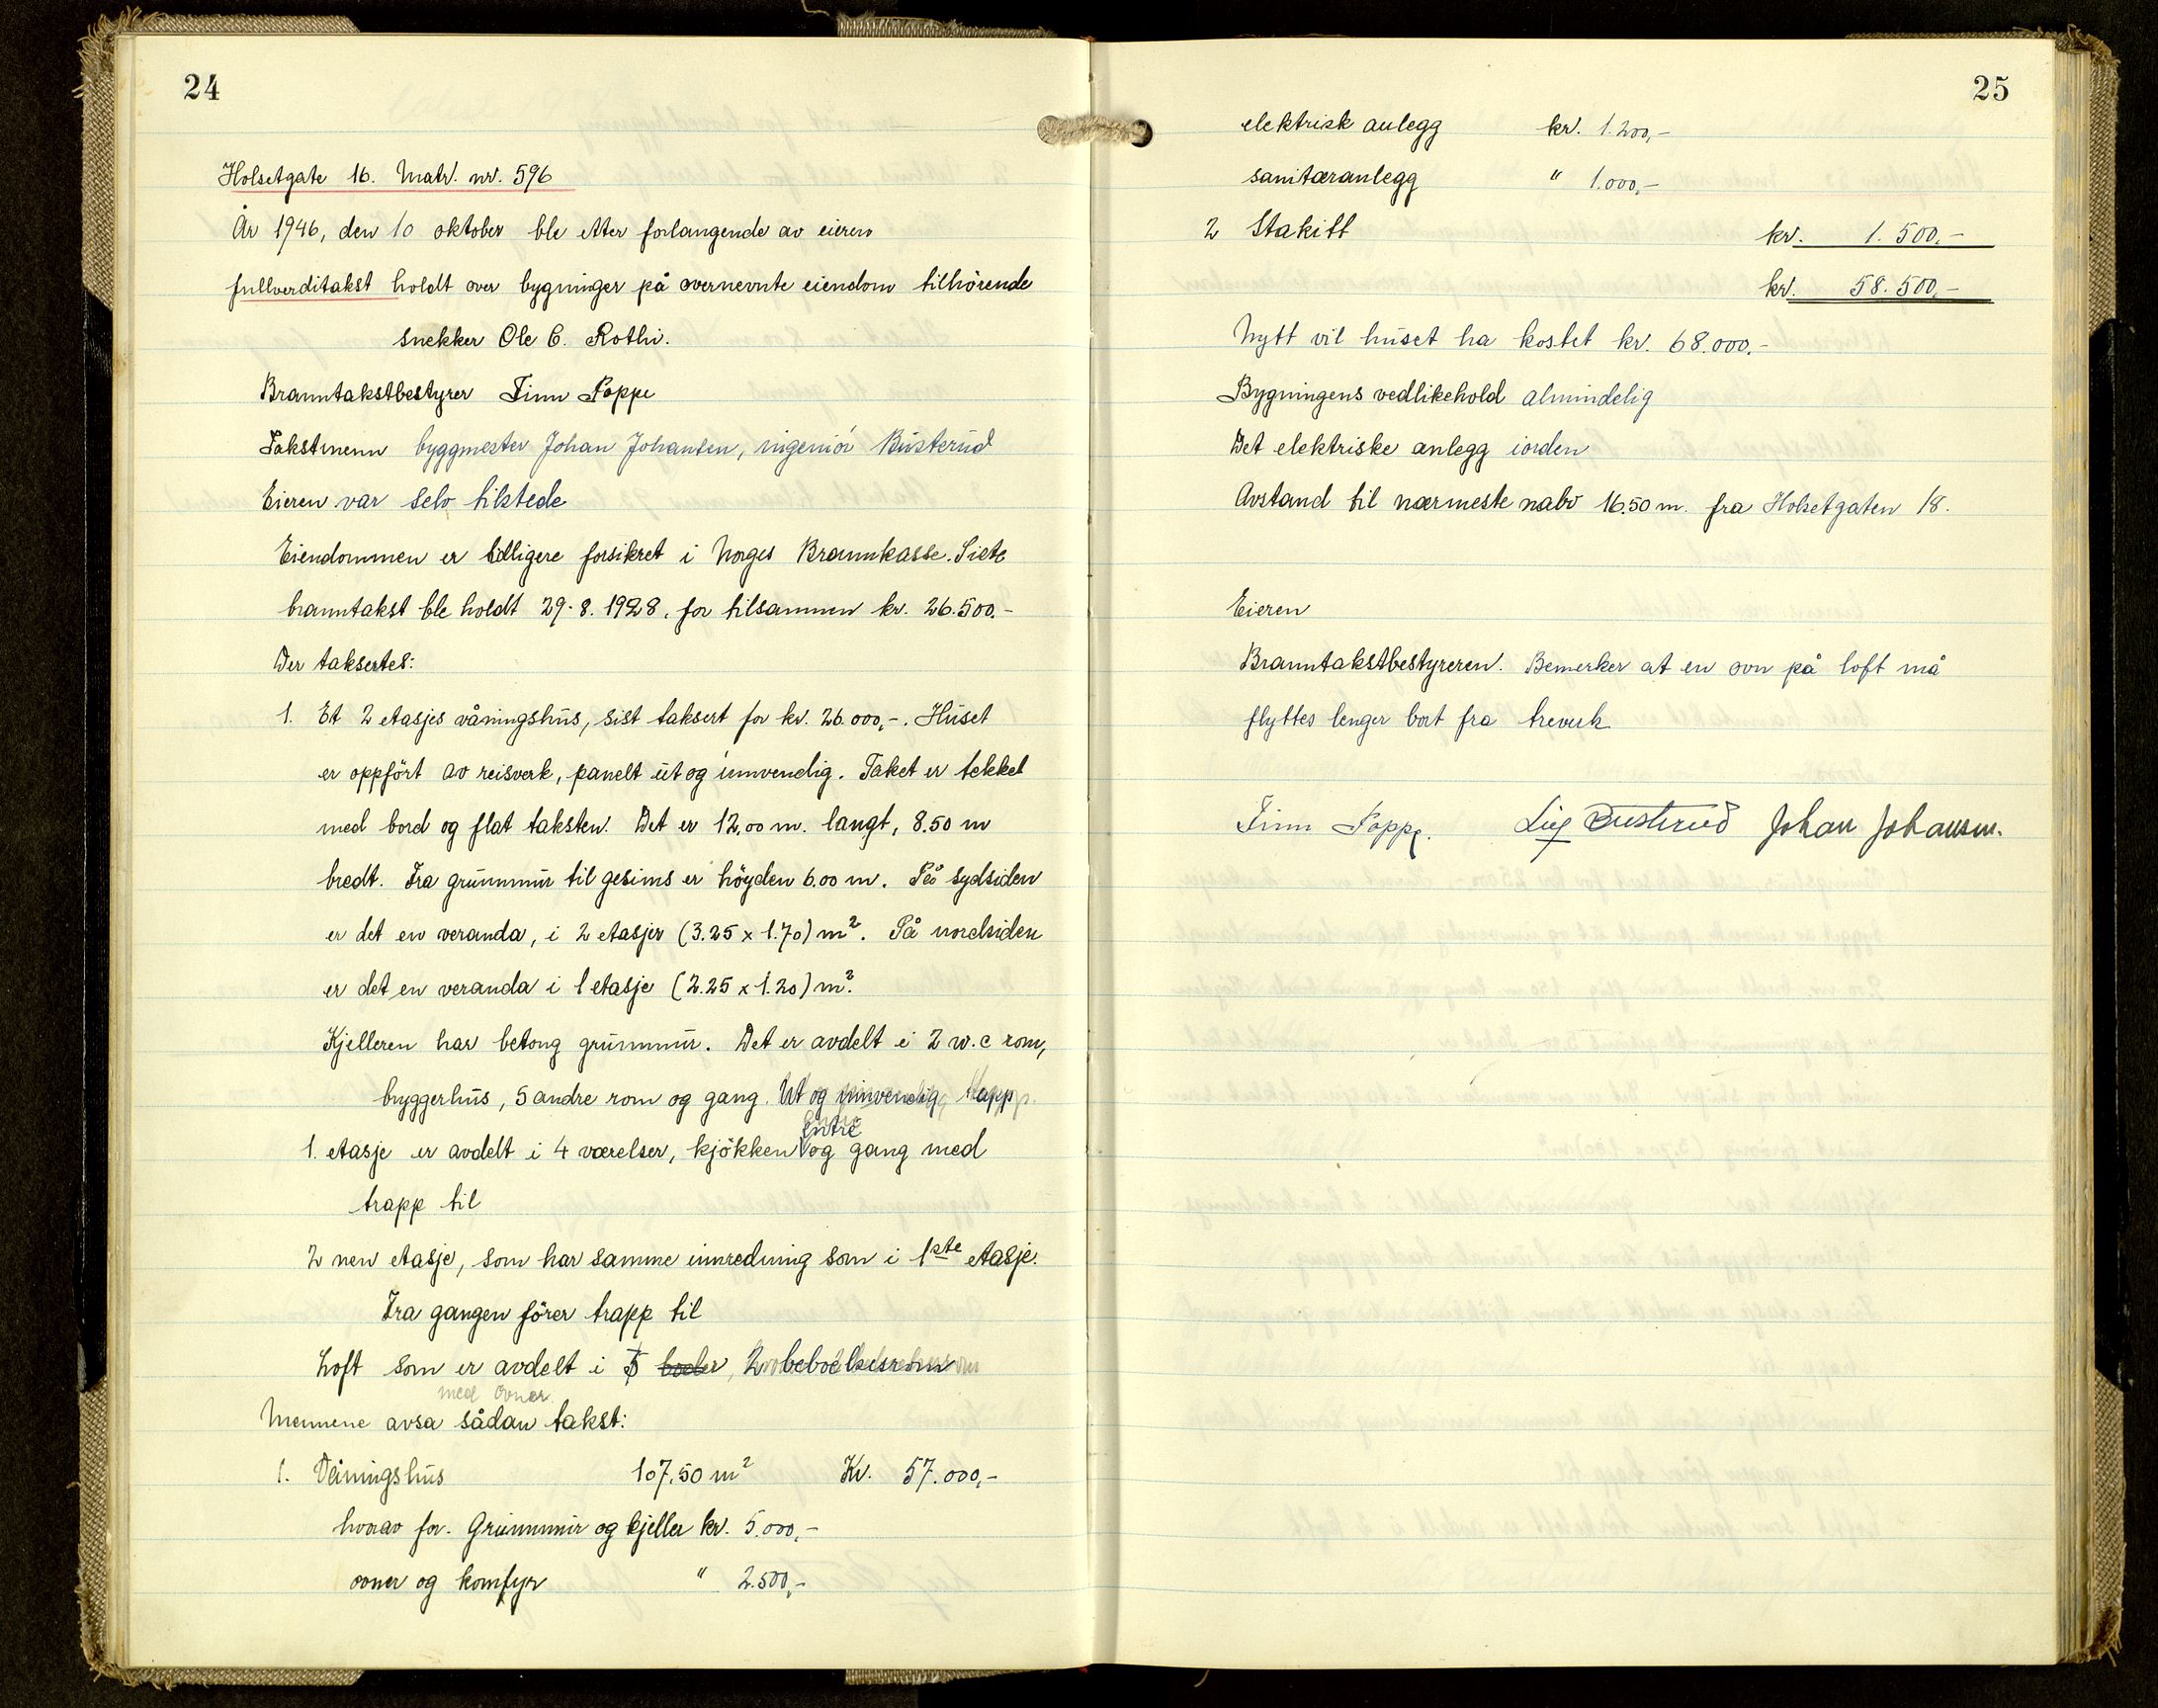 24
Holsetgate 16. Matr. nr. 596
År 1946, den 10 oktober ble etter forlangende av eieren
fullverditakst holdt over bygninger på overnevnte eiendom tilhörende
snekker Ole C. Rothi.
Branntakstbestyrer Finn Poppe
Takstmenn byggmester Johan Johansen, ingeniör Busterud
Eieren var selv tilstede
Eiendommen er tidligere forsikret i Norges Brannkasse. Siste
branntakst ble holdt 29-8. 1928, for tilsammen kr. 26.500.-
Der taksertes:
1. Et 2 etasjes våningshus, sist taksert for kr. 26.000,-. Huset
er oppfört av reisverk, panelt ut og innvendig. Taket er tekket
med bord og flat taksten. Det er 12,00 m. langt, 8.50 m
bredt. Fra grunnmur til gesims er höyden 6.00 m. På sydsiden
er det en veranda, i 2 etasjer (3.25 x 1.70) m². På nordsiden
er det en veranda i 1 etasje (2.25 x 1.20) m².
Kjelleren har betong grunnmur. Det er avdelt i 2 w.c rom,
bryggerhus, 5 andre rom og gang. Ut og innvendig trapp
entre
1. etasje er avdelt i 4 værelser, kjökken og gang med
trapp til
2 nen etasje, som har samme innredning som i 1ste etasje.
Fra gangen förer trapp til
Loft som er avdelt i 5 boder, 2 beboelsesrom
med ovner
Mennene avsa sådan takst:
1. Våningshus 107,50 m² Kr. 57.000,-
hvorav for. Grunnmur og kjeller kr. 5.000,-
ovner og komfyr " 2.500,-
25
elektrisk anlegg kr. 1.200,-
sanitæranlegg " 1.000,-
2 Stakitt kr. 1.500.-
kr. 58.500,-
Nytt vil huset ha kostet kr. 68.000.-
Bygningens vedlikehold almindelig
Det elektriske anlegg iorden
Avstand til nærmeste nabo 16.50 m. fra Holsetgaten 18.
Eieren
Branntakstbestyreren. Bemerker at en ovn på loft må
flyttes lenger bort fra treverk
Finn Poppe. Busterud Johan Johansen.